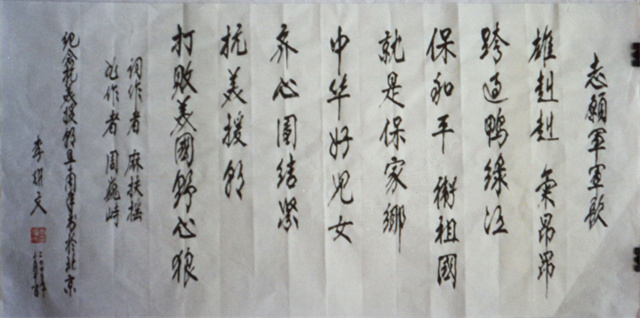 志願军军歌
雄赳赳 氣昂昂
跨过鴨綠江
保和平 衛祖國
就是保家鄉
中华好儿女
齐心团结緊
抗美援朝
打敗美國野心狼
词作者 麻扶摇
曲作者 周巍峙
纪念抗美援朝五十周年书於北京
李